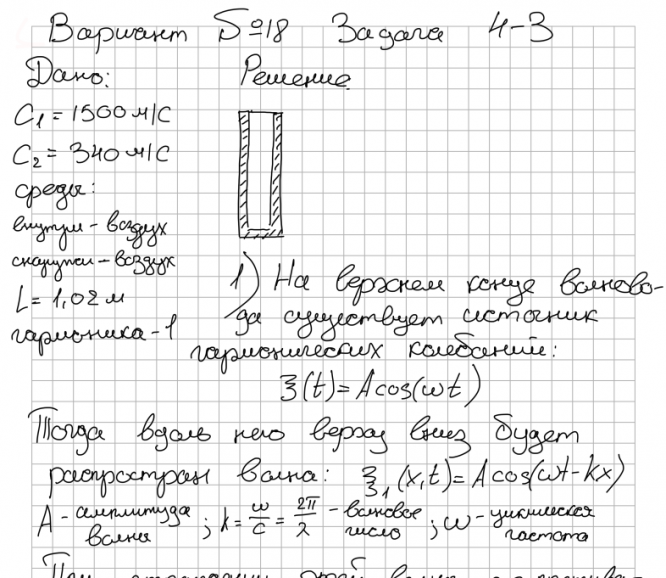 Вариант №18 Задача 4-3
Дано: Решение
C1 = 1500 м/с
C2 = 340 м/с
среды:
внутри - воздух
снаружи - воздух
L = 1,02 м
гармоника - 1
1) На верхнем конце волново-
да существует источник
гармонических колебаний:
ξ(t) = A cos(ωt)
Тогда вдоль него сверху вниз будет
распростран волна: ξ1(x,t) = A cos(ωt - kx)
A - амплитуда волны ; k = ω/c = 2π/λ - волновое число ; ω - циклическая частота
При этой волны